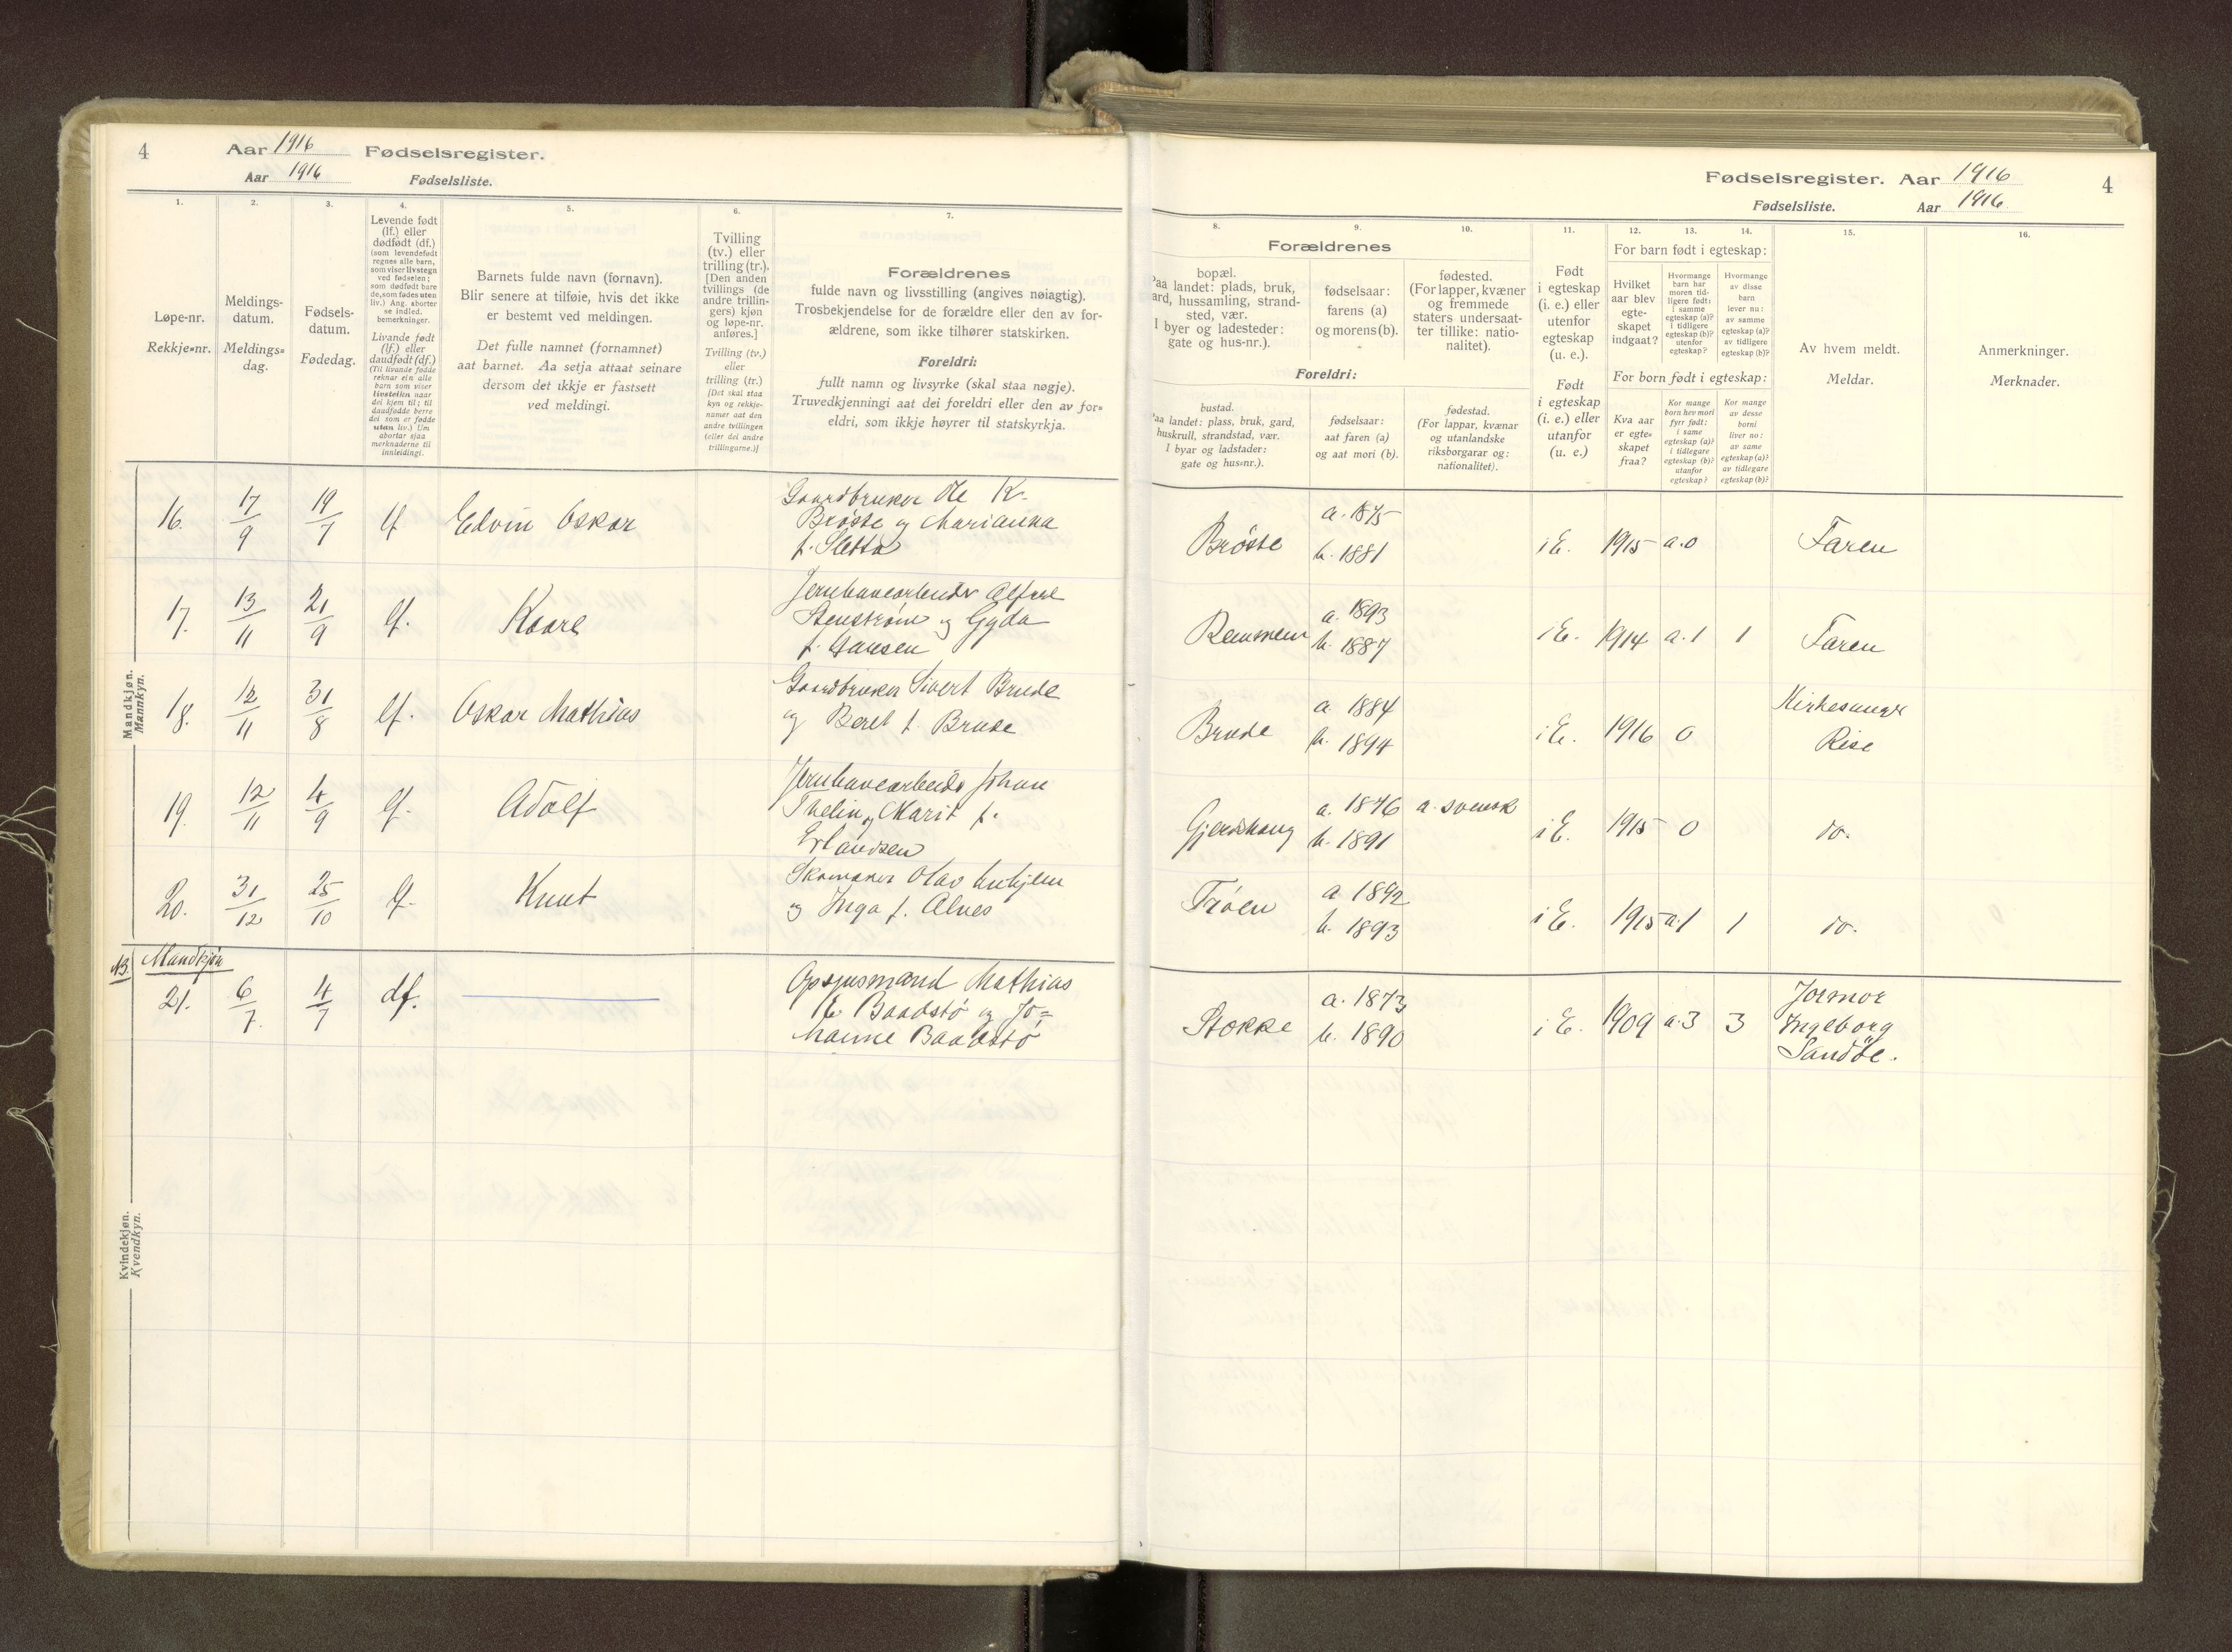 4
Aar 1916 Fødselsregister.
Aar 1916 Fødselsliste.
1.
2.
3.
4.
5.
6.
7.
Løpe-nr.
Rekkje=nr.
Meldings-
datum.
Meldings=
dag.
Fødsels-
datum.
Fødedag.
Levende født
(lf.) eller
dødfødt (df.)
(som levendefødt
regnes alle barn,
som viser livstegn
ved fødselen;
som dødfødt bare
de, som fødes uten
liv.) Ang. aborter
se indled.
bemerkninger.
Livande født
(lf.) eller
daudfødt (df.)
(Til livande fødde
reknar ein alle
born som viser
livsteikn naar
dei kjem til; til
daudfødde berre
dei som er fødde
utan liv.) Um
abortar sjaa
merknaderne til
innleidingi.
Barnets fulde navn (fornavn).
Blir senere at tilføie, hvis det ikke
er bestemt ved meldingen.
Det fulle namnet (fornamnet)
aat barnet. Aa setja attaat seinare
dersom det ikkje er fastsett
ved meldingi.
Tvilling
(tv.) eller
trilling (tr.).
[Den anden
tvillings (de
andre trillin-
gers) kjøn
og løpe-nr.
anføres.]
Tvilling (tv.)
eller
trilling (tr.)
[Det skal staa
kyn og rekkje-
namer aat den
andre tvillingen
(eller dei andre
trillingarne.)]
Forældrenes
fulde navn og livsstilling (angives nøiagtig).
Trosbekjendelse for de forældre eller den av for-
ældrene, som ikke tilhører statskirken.
Foreldri:
fullt namn og livsyrke (skal staa nøgje).
Truvedkjenningi aat dei foreldri eller den av for=
eldri, som ikkje høyrer til statskyrkja.
Mandkjøn.
Mannkyn.
16. 17/9 19/7 lf Edvin Oskar
Gaardbruker Ole K.
Brøste og Marianna
f. Sletta
17. 13/11 21/9 lf. Kaare
Jernbanearbeider Alfred
Stenstrøm og Gyda
f. Hansen
18. 12/11 31/8 lf. Oskar Mathias
Gaardbruker Sivert Brude
og Beret f. Brude
19. 12/11 4/9 lf. Adolf
Jernbanearbeider Johan
Thelin og Marit f.
Erlandsen
20. 31/12 25/10 lf. Knut
og Inga f. Alnes
Kvindekjøn.
Kvendkyn.
NB. Mandkjøn
21. 6/7 4/7 df.
Opsynsmand Mathias
E Baadstø og Jo=
hanne Baadstø
Fødselsregister. Aar 1916
Fødselsliste. Aar 1916
4
8.
9.
10.
11.
12.
13.
14.
15.
16.
Forældrenes
bopæl.
Paa landet: plads, bruk,
ard, hussamling, strand-
sted, vær.
I byer og ladesteder:
gate og hus-nr.).
fødselsaar:
farens (a)
og morens (b).
fødested.
(For lapper, kvæner
og fremmede
staters undersaat-
ter tillike: natio-
nalitet).
Foreldri:
bustad.
Paa landet: plass, bruk, gard,
huskrull, strandstad, vær.
I byar og ladstader:
gate og hus=nr.).
fødselsaar:
aat faren (a)
og aat mori (b).
fødestad.
(For lappar, kvænar
og utanlandske
riksborgarar og:
nationalitet).
Født
i egteskap
(i. e.) eller
utenfor
egteskap
(u. e.).
Født
i egteskap
(i. e.) eller
utanfor
(u. e.)
For barn født i egteskap:
Hvilket
aar blev
egte-
skapet
indgaat?
Hvormange
barn har
moren tid-
ligere født:
i samme
egteskap (a)?
i tidligere
egteskap (b)?
utenfor
egteskap?
Hvormange
av disse
barn
lever nu:
av samme
egteskap (a)?
av tidligere
egteskap (b)?
For born født i egteskap:
Kva aar
er egte=
skapet
fraa?
Kor mange
born hev mori
fyrr født:
i same
egteskap (a)?
i tidlegare
egteskap (b)?
utanfor
egteskap?
Kor mange
av desse
borni
liver no:
av same
egteskap (a)?
av tidlegare
egteskap (b)?
Av hvem meldt.
Meldar.
Anmerkninger.
Merknader.
Brøste a. 1875 b. 1881 i E. 1915 a.0 Faren
Remmem a. 1893 b. 1887 i E. 1914 a.1 1 Faren
Brude a. 1884 b. 1894 i E. 1916 0
Kirkesanger
Rise
Gjerdshaug a. 1876 b. 1891 a. svensk i E. 1915 0 do.
Trøen a 1892 b. 1893 i E. 1915 a.1 1 do.
Stokke a. 1873 b. 1890 i E. 1909 a.3 3
Jormor
Ingeborg
Sandøe.